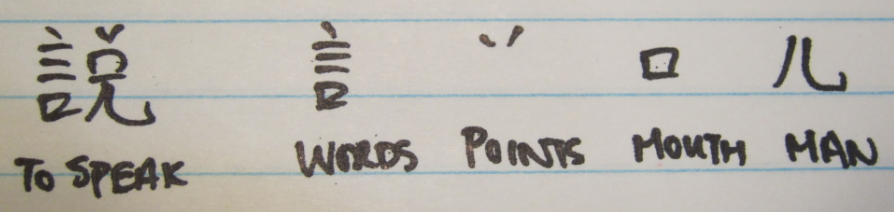 說 言 丷 口 儿
TO SPEAK WORDS POINTS MOUTH MAN